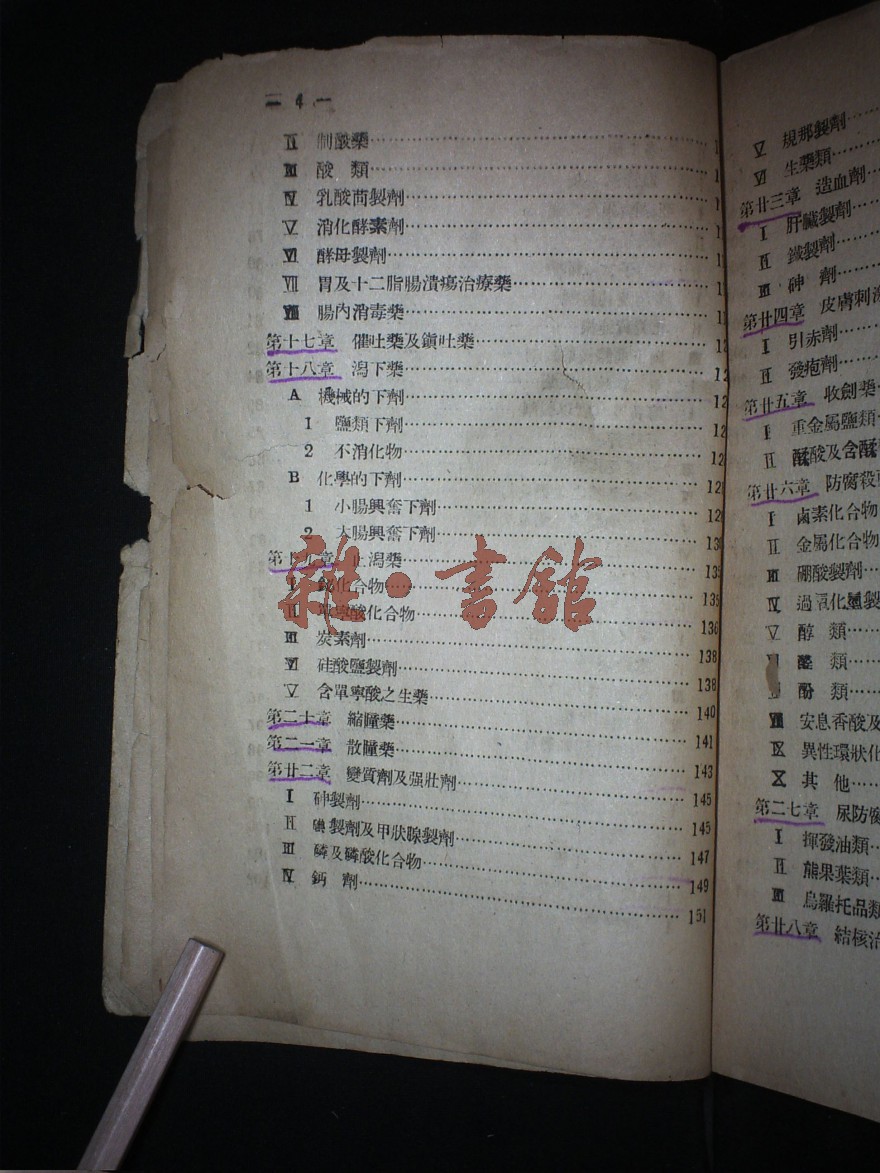 — 4 —
Ⅱ 制酸藥
Ⅲ 酸 類
Ⅳ 乳酸菌製劑
Ⅴ 消化酵素劑
Ⅵ 酵母製劑
Ⅶ 胃及十二脂腸潰瘍治療藥
Ⅷ 腸內消毒藥
第十七章 催吐藥及鎭吐藥
第十八章 瀉下藥
A 機械的下劑
1 鹽類下劑
2 不消化物
B 化學的下劑
1 小腸興奮下劑
2 大腸興奮下劑
第十九章 止瀉藥 135
Ⅰ 鉍化合物 135
Ⅱ 單寧酸化合物 136
Ⅲ 炭素劑 138
Ⅵ 硅酸鹽製劑 138
Ⅴ 含單寧酸之生藥 140
第二十章 縮瞳藥 141
第二一章 散瞳藥 143
第廿二章 變質劑及强壯劑 145
Ⅰ 砷製劑 145
Ⅱ 碘製劑及甲狀腺製劑 147
Ⅲ 磷及磷酸化合物 149
Ⅳ 鈣 劑 151
雜·書館
Ⅴ 規那製劑
Ⅵ 生藥類
第廿三章 造血劑
Ⅰ 肝臟製劑
Ⅱ 鐵製劑
Ⅲ 砷 劑
第廿四章 皮膚刺激
Ⅰ 引赤劑
Ⅱ 發疱劑
第廿五章 收劍藥
Ⅰ 重金屬鹽類
Ⅱ 醆酸及含醆
第廿六章 防腐殺
Ⅰ 鹵素化合物
Ⅱ 金屬化合物
Ⅲ 硼酸製劑
Ⅳ 過氧化氫製
Ⅴ 醇 類
醛 類
酚 類
Ⅷ 安息香酸及
Ⅸ 異性環狀化
Ⅹ 其 他
第二七章 尿防腐
Ⅰ 揮發油類
Ⅱ 熊果葉類
Ⅲ 烏羅托品類
第廿八章 結核治